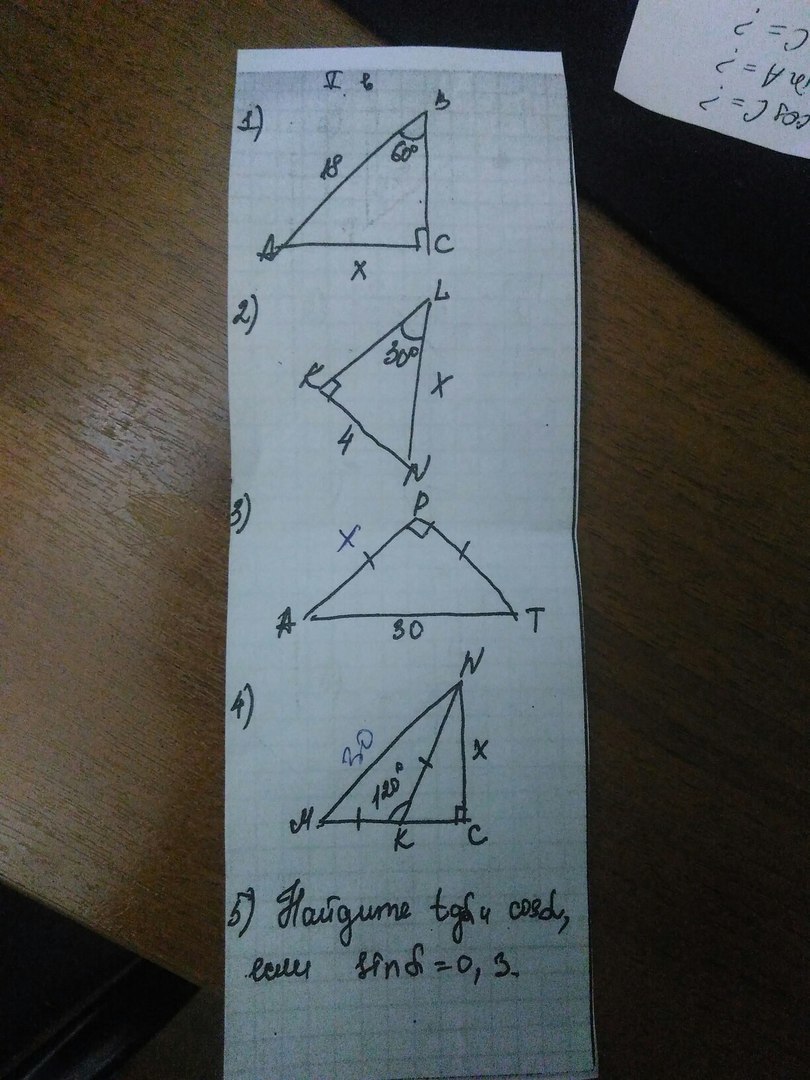 V в
1)
B
60°
18
A
C
x
2)
L
30°
K
x
4
N
3)
P
x
A
T
30
4)
N
30
x
120°
M
K
C
5) Найдите tgα и cosα,
если sinα = 0,3.
C = ?
in A = ?
cos C = ?